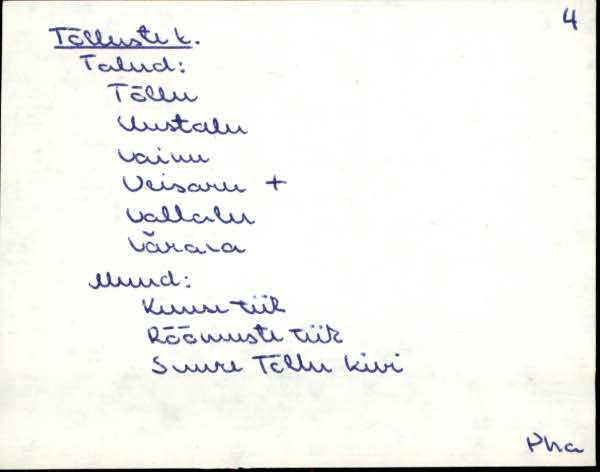 4
Tõlluste k.
Talud:
Tõllu
Uustalu
Vainu
Veisaru +
Vallalu
Värava
Muud:
Kuuse tiik
Rõõmuste tiik
Suure Tõllu kivi
Pha